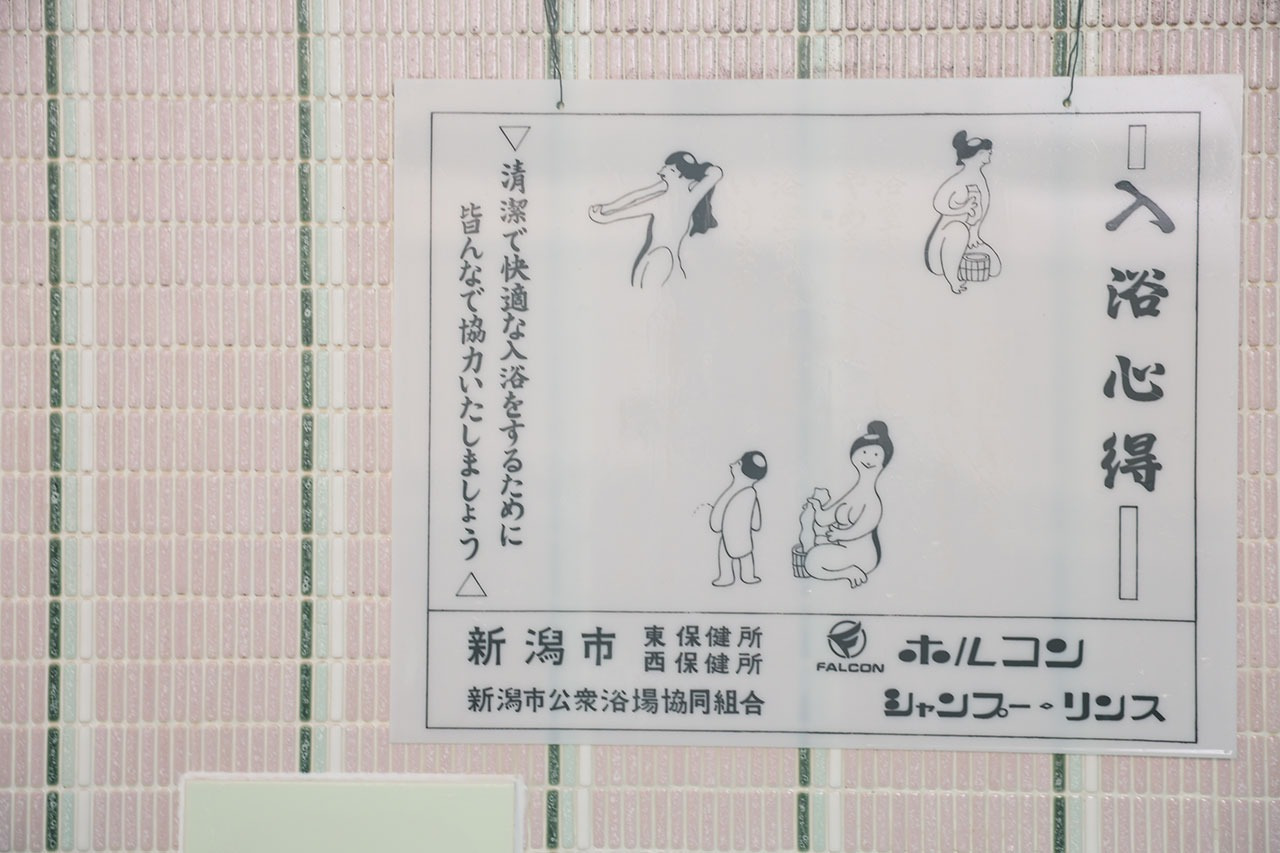 入浴心得
清潔で快適な入浴をするために
皆んなで協力いたしましょう
新潟市
東保健所
西保健所
新潟市公衆浴場協同組合
FALCON
ホルコン
シャンプー・リンス